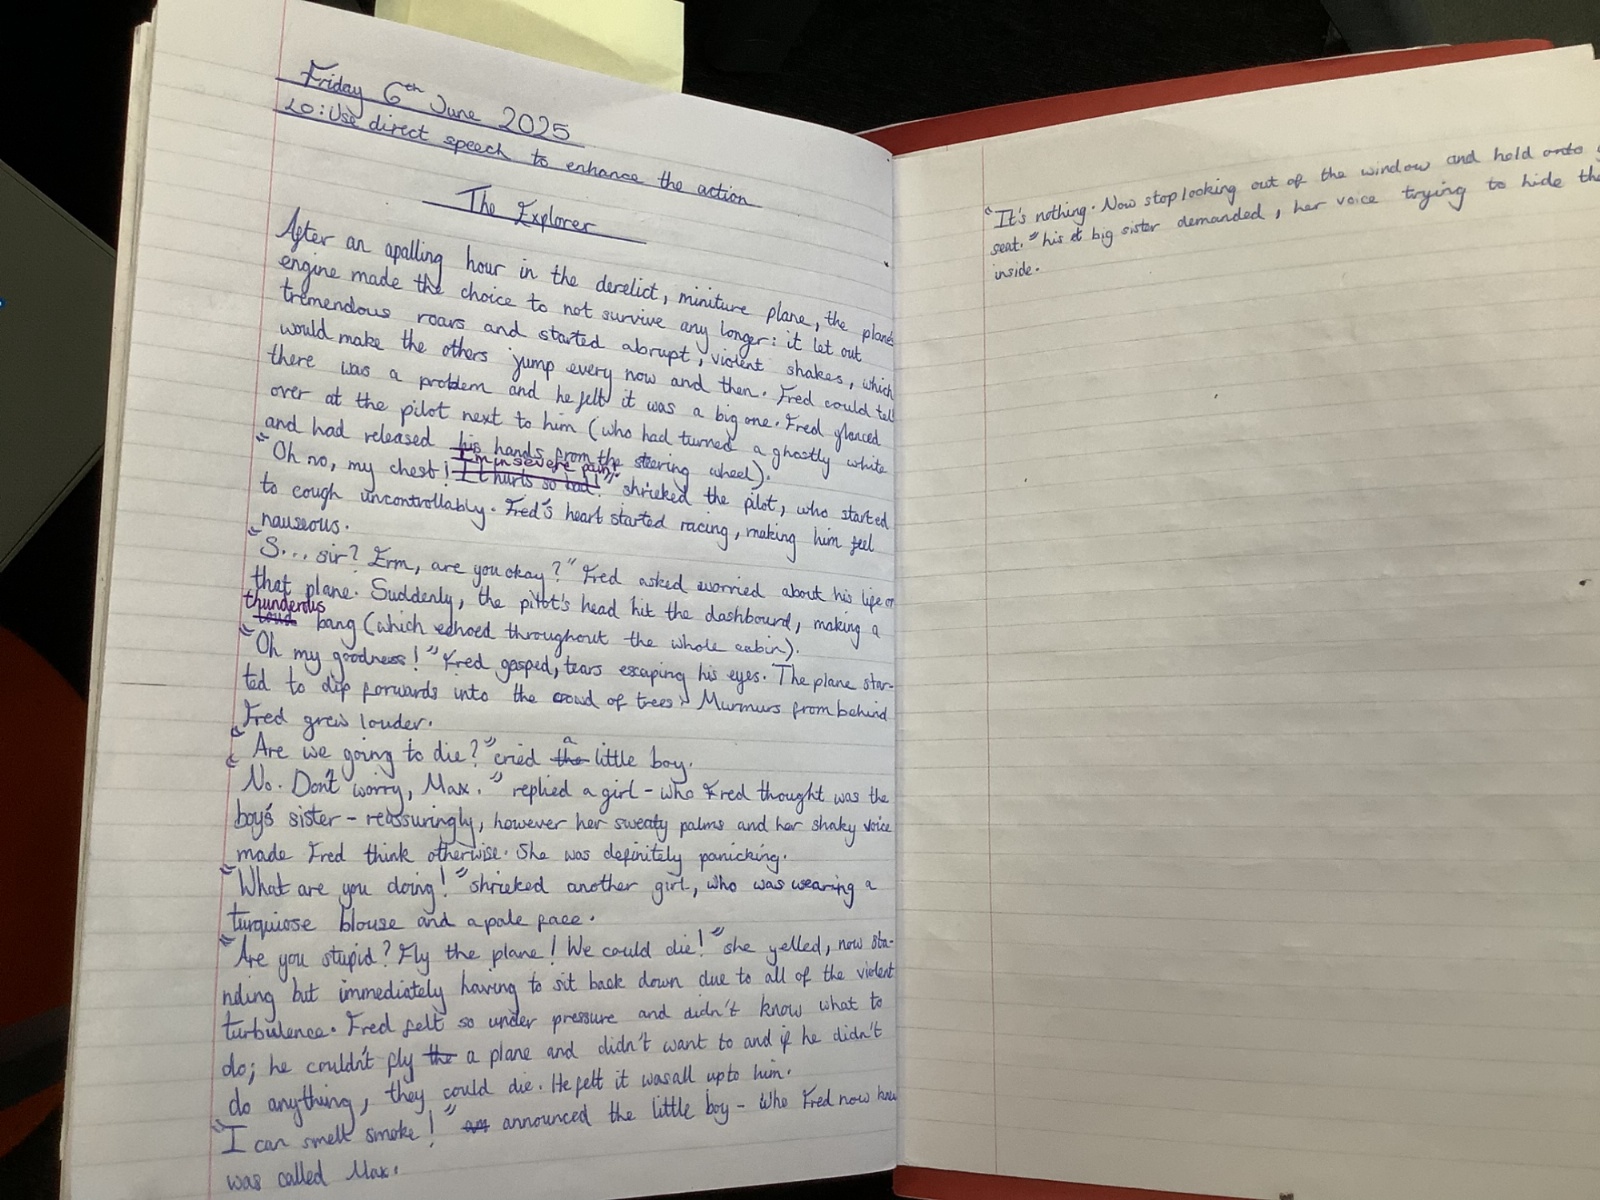 Friday 6th June 2025
LO: Use direct speech to enhance the action
The Explorer
After an apalling hour in the derelict, miniture plane, the plane's
engine made the choice to not survive any longer: it let out
tremendous roars and started abrupt, violent shakes, which
would make the others jump every now and then. Fred could tell
there was a problem and he felt it was a big one. Fred glanced
over at the pilot next to him (who had turned a ghostly white
and had released his hands from the steering wheel).
"Oh no, my chest! I'm in severe pain!" shrieked the pilot, who started
to cough uncontrollably. Fred's heart started racing, making him feel
nauseous.
"S... sir? Erm, are you okay?" Fred asked worried about his life on
that plane. Suddenly, the pilot's head hit the dashbourd, making a
thunderous bang (which echoed throughout the whole cabin).
"Oh my goodness!" Fred gasped, tears escaping his eyes. The plane star-
ted to dip forwards into the crowd of trees. Murmurs from behind
Fred grew louder.
"Are we going to die?" cried a little boy.
"No. Don't worry, Max." replied a girl - who Fred thought was the
boy's sister - reassuringly, however her sweaty palms and her shaky voice
made Fred think otherwise. She was definitely panicking.
"What are you doing!" shrieked another girl, who was wearing a
turquiose blouse and a pale face.
"Are you stupid? Fly the plane! We could die!" she yelled, now sta-
nding but immediately having to sit back down due to all of the violent
turbulence. Fred felt so under pressure and didn't know what to
do; he couldn't fly a plane and didn't want to and if he didn't
do anything, they could die. He felt it was all up to him.
"I can smell smoke!" announced the little boy - who Fred now knew
was called Max.
"It's nothing. Now stop looking out of the window and hold
seat." his big sister demanded, her voice trying to hide the
inside.